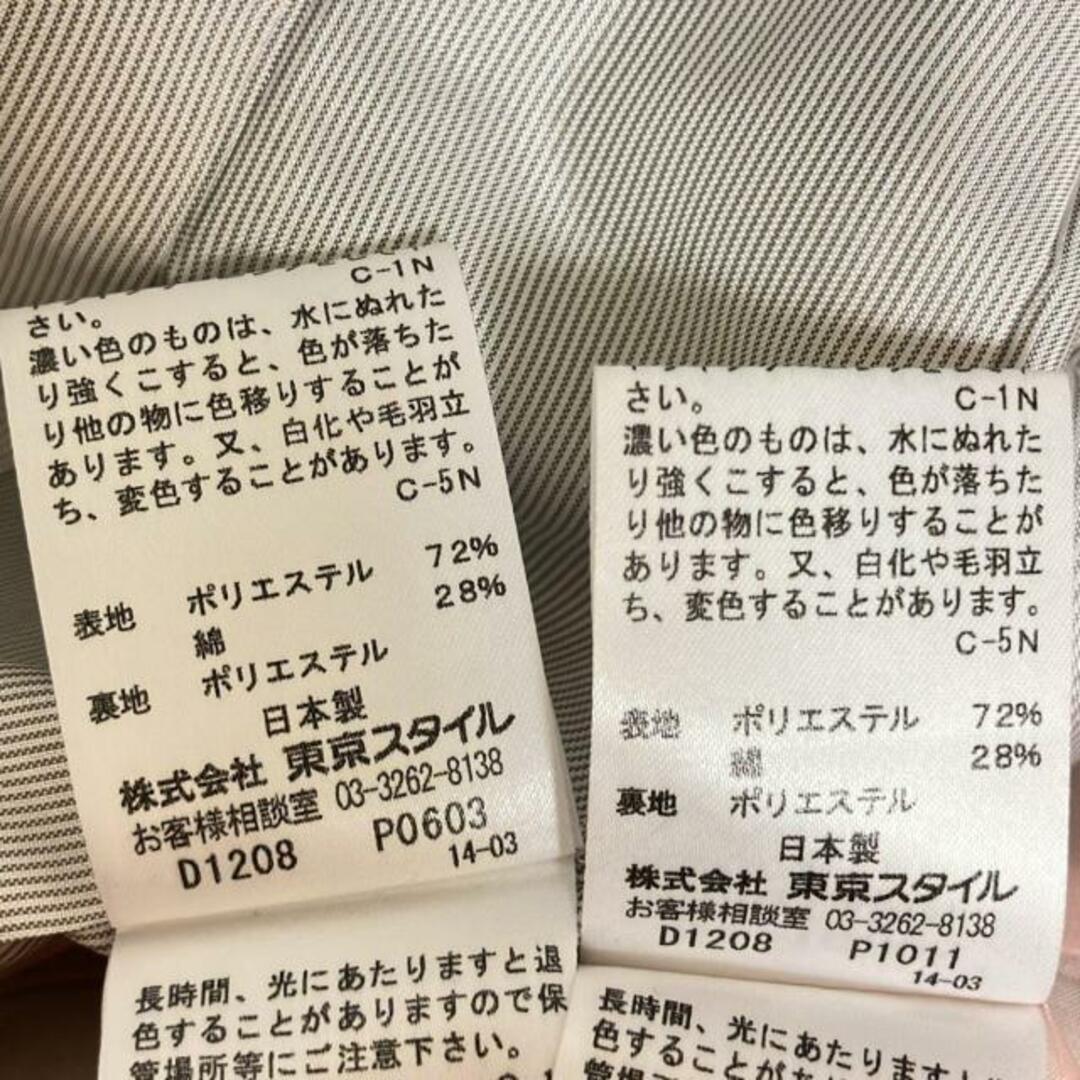 C-1N
さい。
濃い色のものは、水にぬれた
り強くこすると、色が落ちた
り他の物に色移りすることが
あります。又、白化や毛羽立
ち、変色することがあります。
C-5N
表地 ポリエステル 72%
綿 28%
裏地 ポリエステル
日本製
株式会社 東京スタイル
お客様相談室 03-3262-8138
D1208 P0603
14-03
長時間、光にあたりますと退
色することがありますので保
管場所等にご注意下さい。
さい。 C-1N
濃い色のものは、水にぬれた
り強くこすると、色が落ちた
り他の物に色移りすることが
あります。又、白化や毛羽立
ち、変色することがあります。
C-5N
表地 ポリエステル 72%
綿 28%
裏地 ポリエステル
日本製
株式会社 東京スタイル
お客様相談室 03-3262-8138
D1208 P1011
14-03
長時間、光にあたります
色することが